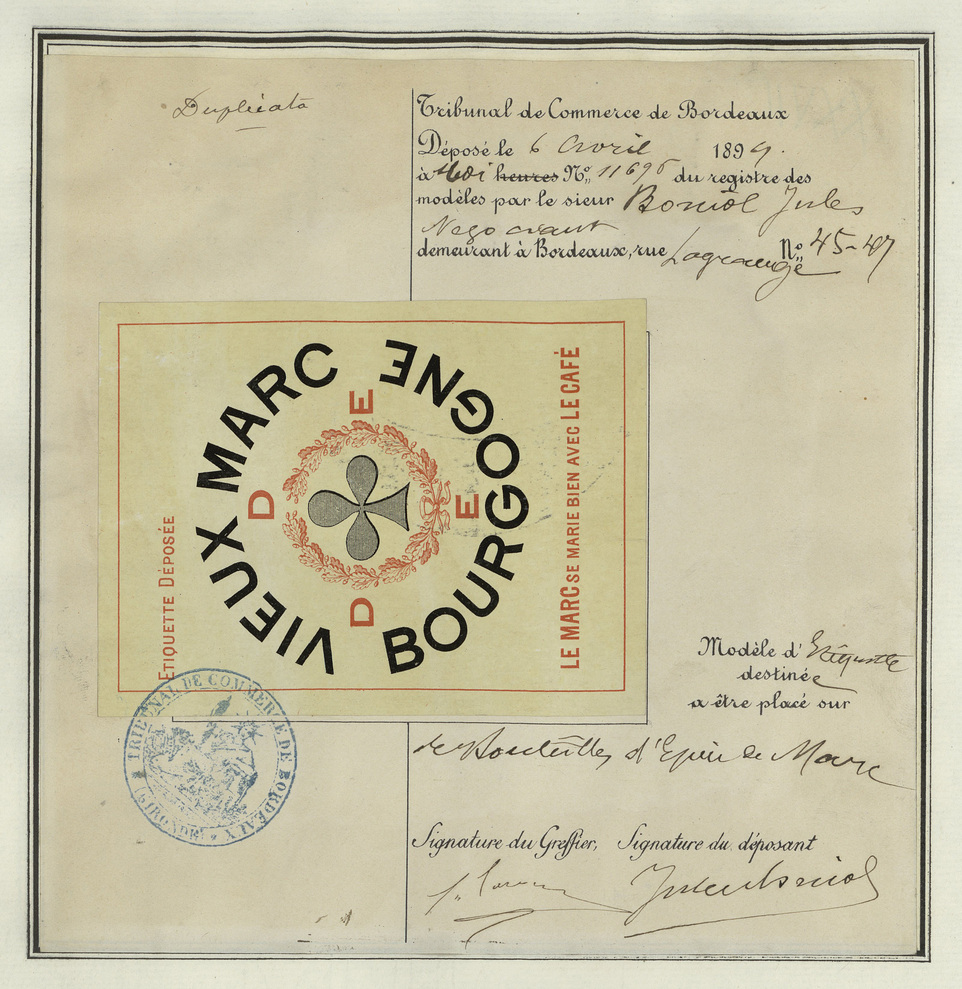 Duplicata
Tribunal de Commerce de Bordeaux
Déposé le 6 Avril 1899.
à Midi heures No. 11696 du registre des
modèles par le sieur Boniol Jules
Négociant
demeurant à Bordeaux, rue Lagrange No. 45-47
VIEUX MARC
DE
BOURGOGNE
D E D E
ETIQUETTE DÉPOSÉE
LE MARC SE MARIE BIEN AVEC LE CAFÉ
TRIBUNAL DE COMMERCE DE BORDEAUX
(GIRONDE)
Modèle d'Etiquette
destinée
a être placé sur
de Bouteilles d' de Marc
Signature du Greffier, Signature du déposant